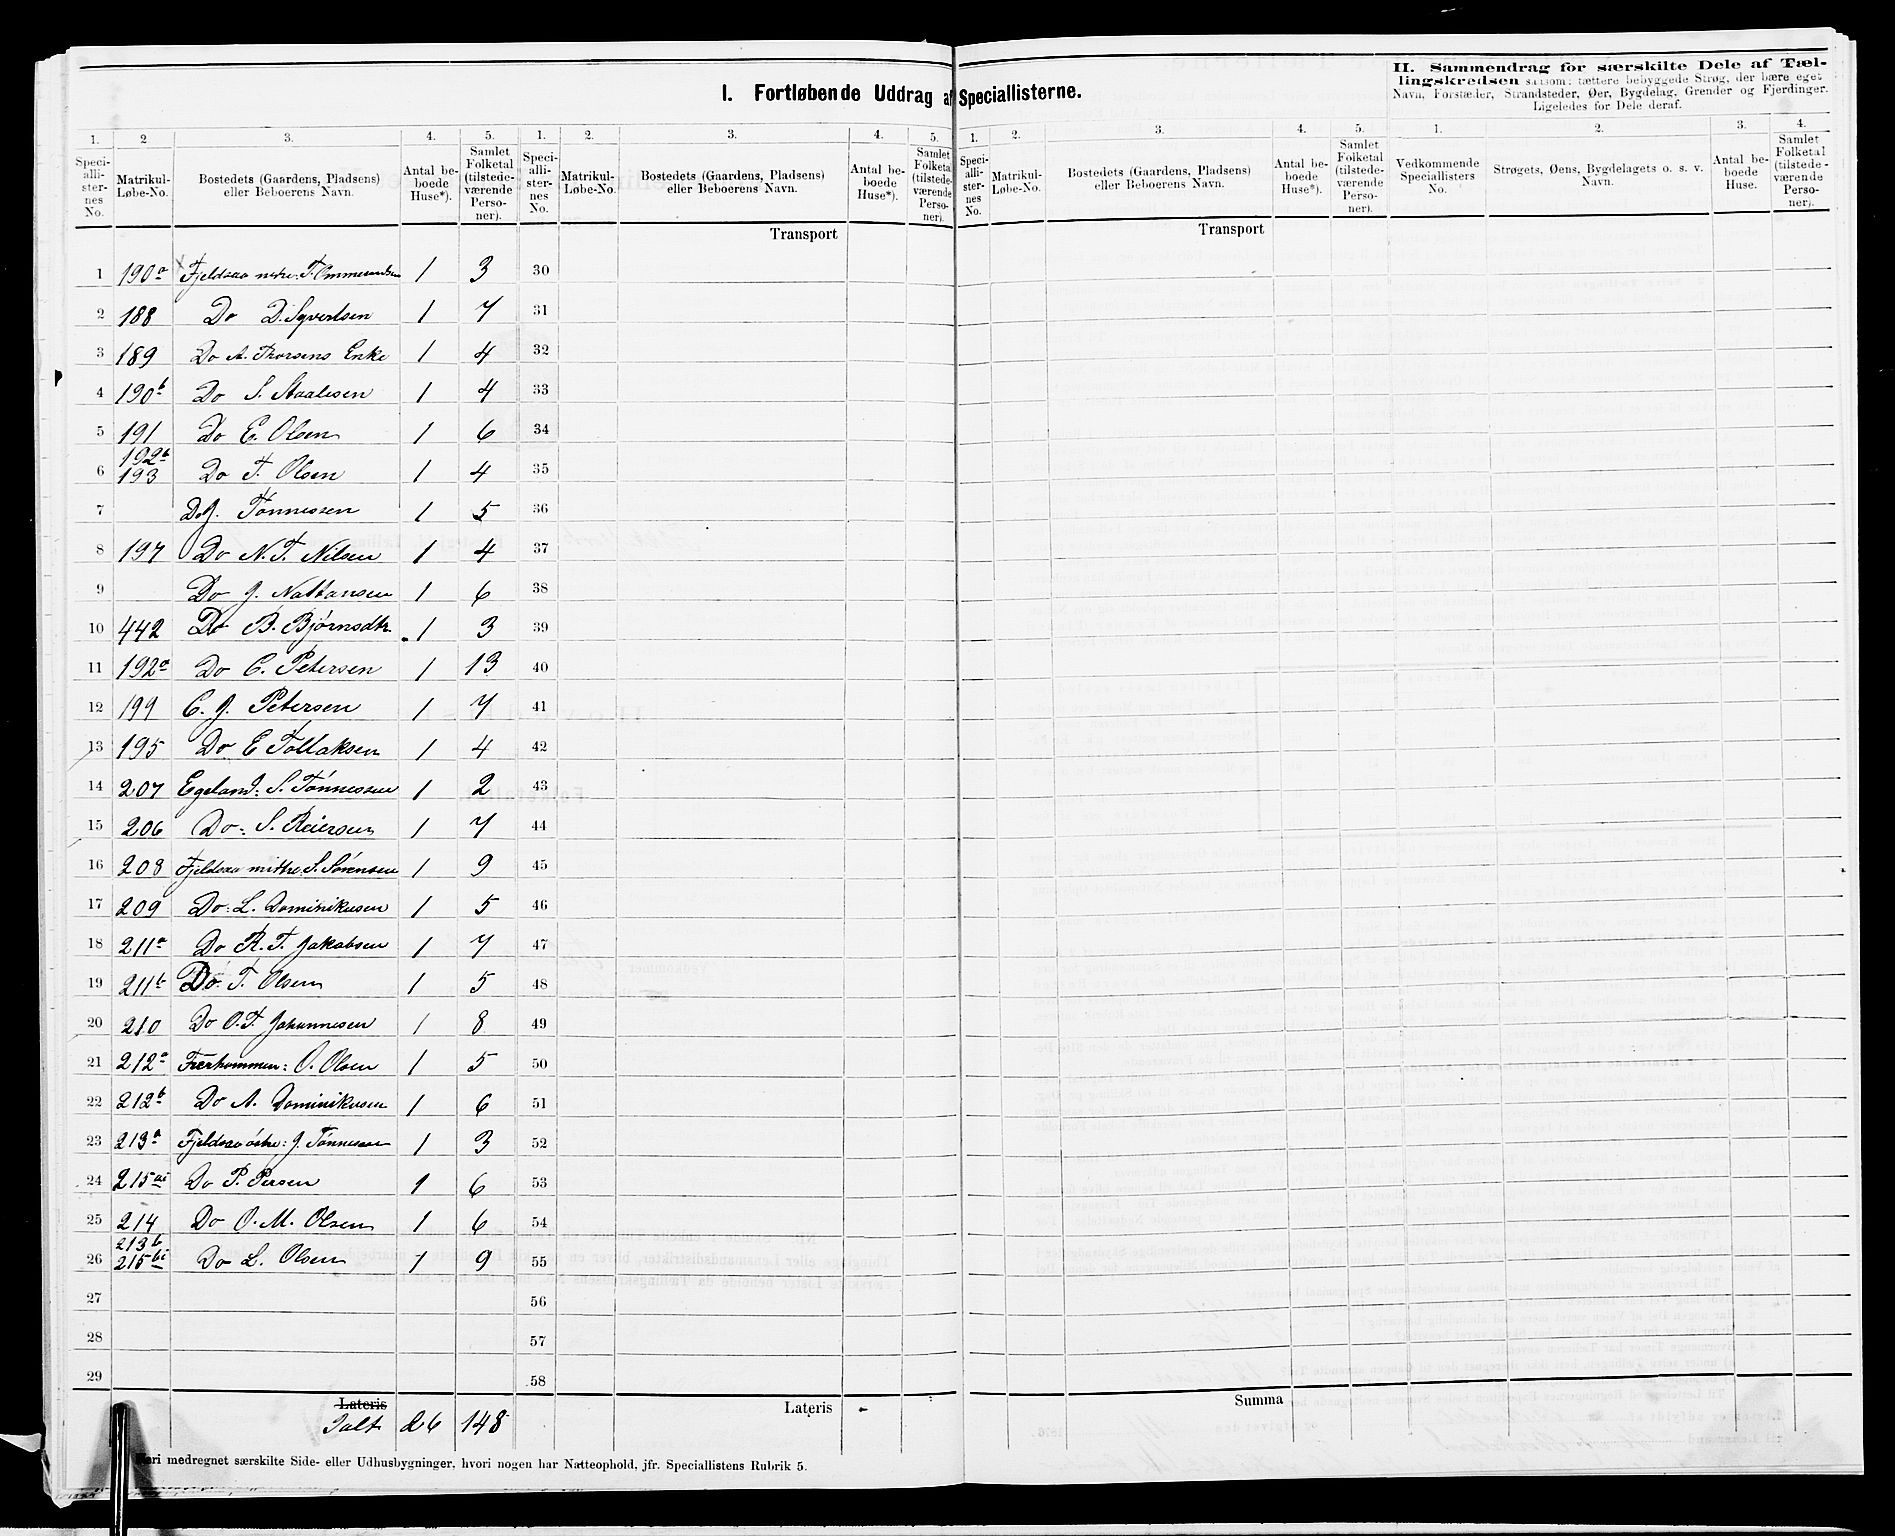 I. Fortløbende Uddrag af Speciallisterne.
II. Sammendrag for særskilte Dele af Tæl-
lingskredsen saasom: tættere bebyggede Strøg, der bære eget
Navn, Forstæder, Strandsteder, Øer, Bygdelag, Grender og Fjerdinger.
Ligeledes for Dele deraf.
1. 2 3. 4. 5. 1. 2. 3. 4. 5. 1. 2. 3. 4. 5. 1. 2. 3. 4.
Speci-alli-ster-nes No. Matrikul-Løbe-No. Bostedets (Gaardens, Pladsens) eller Beboerens Navn. Antal be-boede Huse*). Samlet Folketal (tilstede-værende Perso-ner).
Speci-alli-ster-nes No. Matrikul-Løbe-No. Bostedets (Gaardens, Pladsens) eller Beboerens Navn. Antal be-boede Huse*). Samlet Folketal (tilstede-værende Perso-ner).
Speci-alli-ster-nes No. Matrikul-Løbe-No. Bostedets (Gaardens, Pladsens) eller Beboerens Navn. Antal be-boede Huse*). Samlet Folketal (tilstede-værende Perso-ner).
Vedkommende Speciallisters No. Strøgets, Øens, Bygdelagets o. s. v. Navn. Antal be-boede Huse. Samlet Folketal (tilstede-værende Perso-ner).
Transport Transport
1 190a Fjeldsaa mtre: T. Ommundsen 1 3 30
2 188 Do D. Syvertsen 1 7 31
3 189 Do A. Thorsens Enke 1 4 32
4 190b Do S. Staalesen 1 4 33
5 191 Do E. Olsen 1 6 34
192b
6 193 Do T. Olsen 1 4 35
7 Do J. Tønnessen 1 5 36
8 197 Do N. T. Nilsen 1 4 37
9 Do J. Nattansen 1 6 38
10 442 Do B. Bjørnsdtr. 1 3 39
11 192a Do C. Petersen 1 13 40
12 199 C. J. Petersen 1 7 41
13 195 Do E Tollaksen 1 4 42
14 207 Egeland: S. Tønnessen 1 2 43
15 206 Do: S. Reiersen 1 7 44
16 208 Fjeldsaa mittre: S. Sørensen 1 9 45
17 209 Do: L. Dominikusen 1 5 46
18 211a Do R. T. Jakobsen 1 7 47
19 211b Do T. Olsen 1 5 48
20 210 Do O. T. Johannesen 1 8 49
21 212a O. Olsen 1 5 50
22 212b Do A. Dominikusen 1 6 51
23 213a Fjeldsaa østre: J. Tønnessen 1 3 52
24 215ai Do P. Persen 1 6 53
25 214 Do O. M. Olsen 1 6 54
213b
26 215bi Do L. Olsen 1 9 55
27 56
28 57
29 58
Lateris Lateris Summa
Ialt 26 148
*) Heri medregnet særskilte Side- eller Udhusbygninger, hvori nogen har Natteophold, jfr. Speciallistens Rubrik 5.